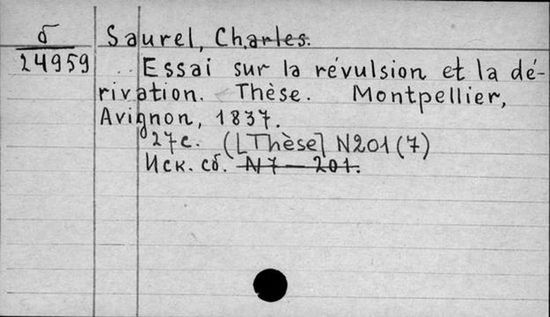 б
24959
Saurel, Charles.
Essai sur la révulsion et la dé-
rivation. Thèse. Montpellier,
Avignon, 1837.
27c. ([Thèse] N201(7)
Иск. сб. N7-201.